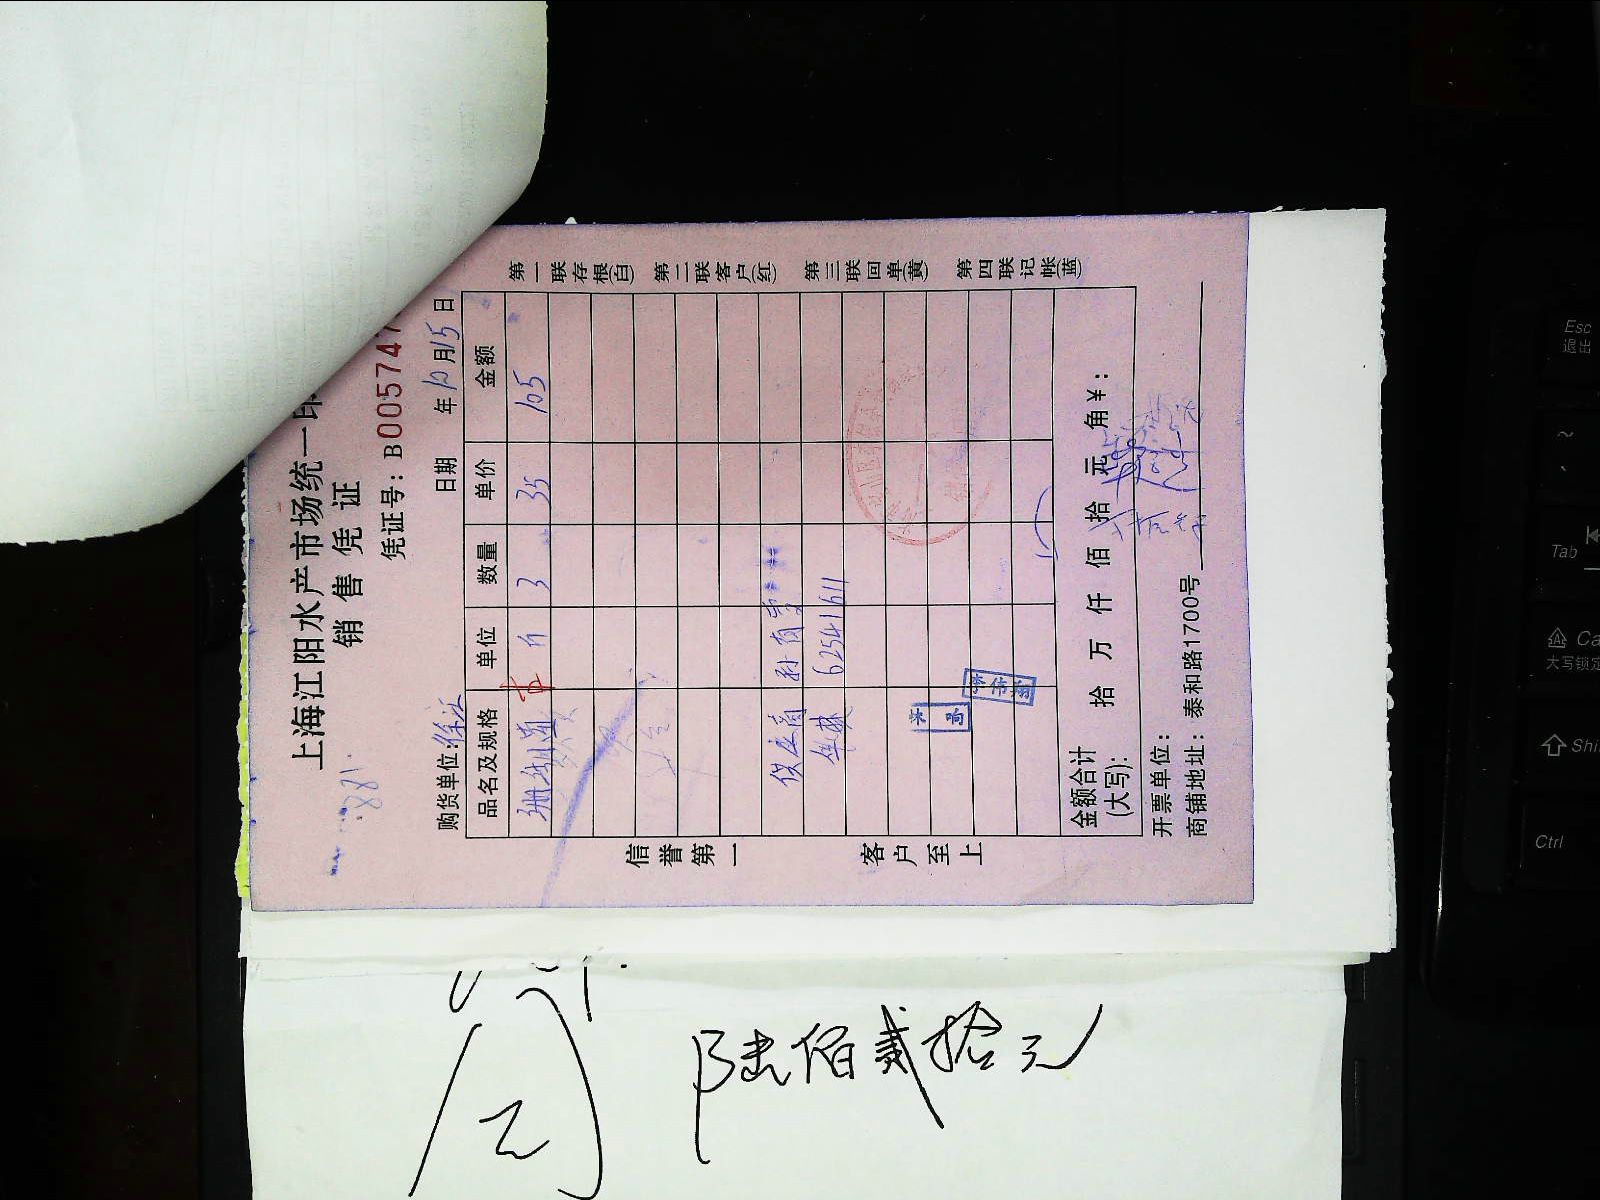 上海江阳水产市场统一印
销售凭证
凭证号: B005747
购货单位: 徐汇 日期 年 10 月 15 日
品名及规格 单位 数量 单价 金额
斤 3 35 105
供应商 孙
华林 62541611
金额合计(大写): 拾 万 仟 佰 拾 元 角 ¥:
开票单位:
商铺地址: 泰和路1700号
信誉第一 客户至上
第一联存根(白) 第二联客户(红) 第三联回单(黄) 第四联记帐(蓝)
陆佰贰拾元
Esc
退出
~
Tab
Ca
大写锁定
Shi
Ctrl